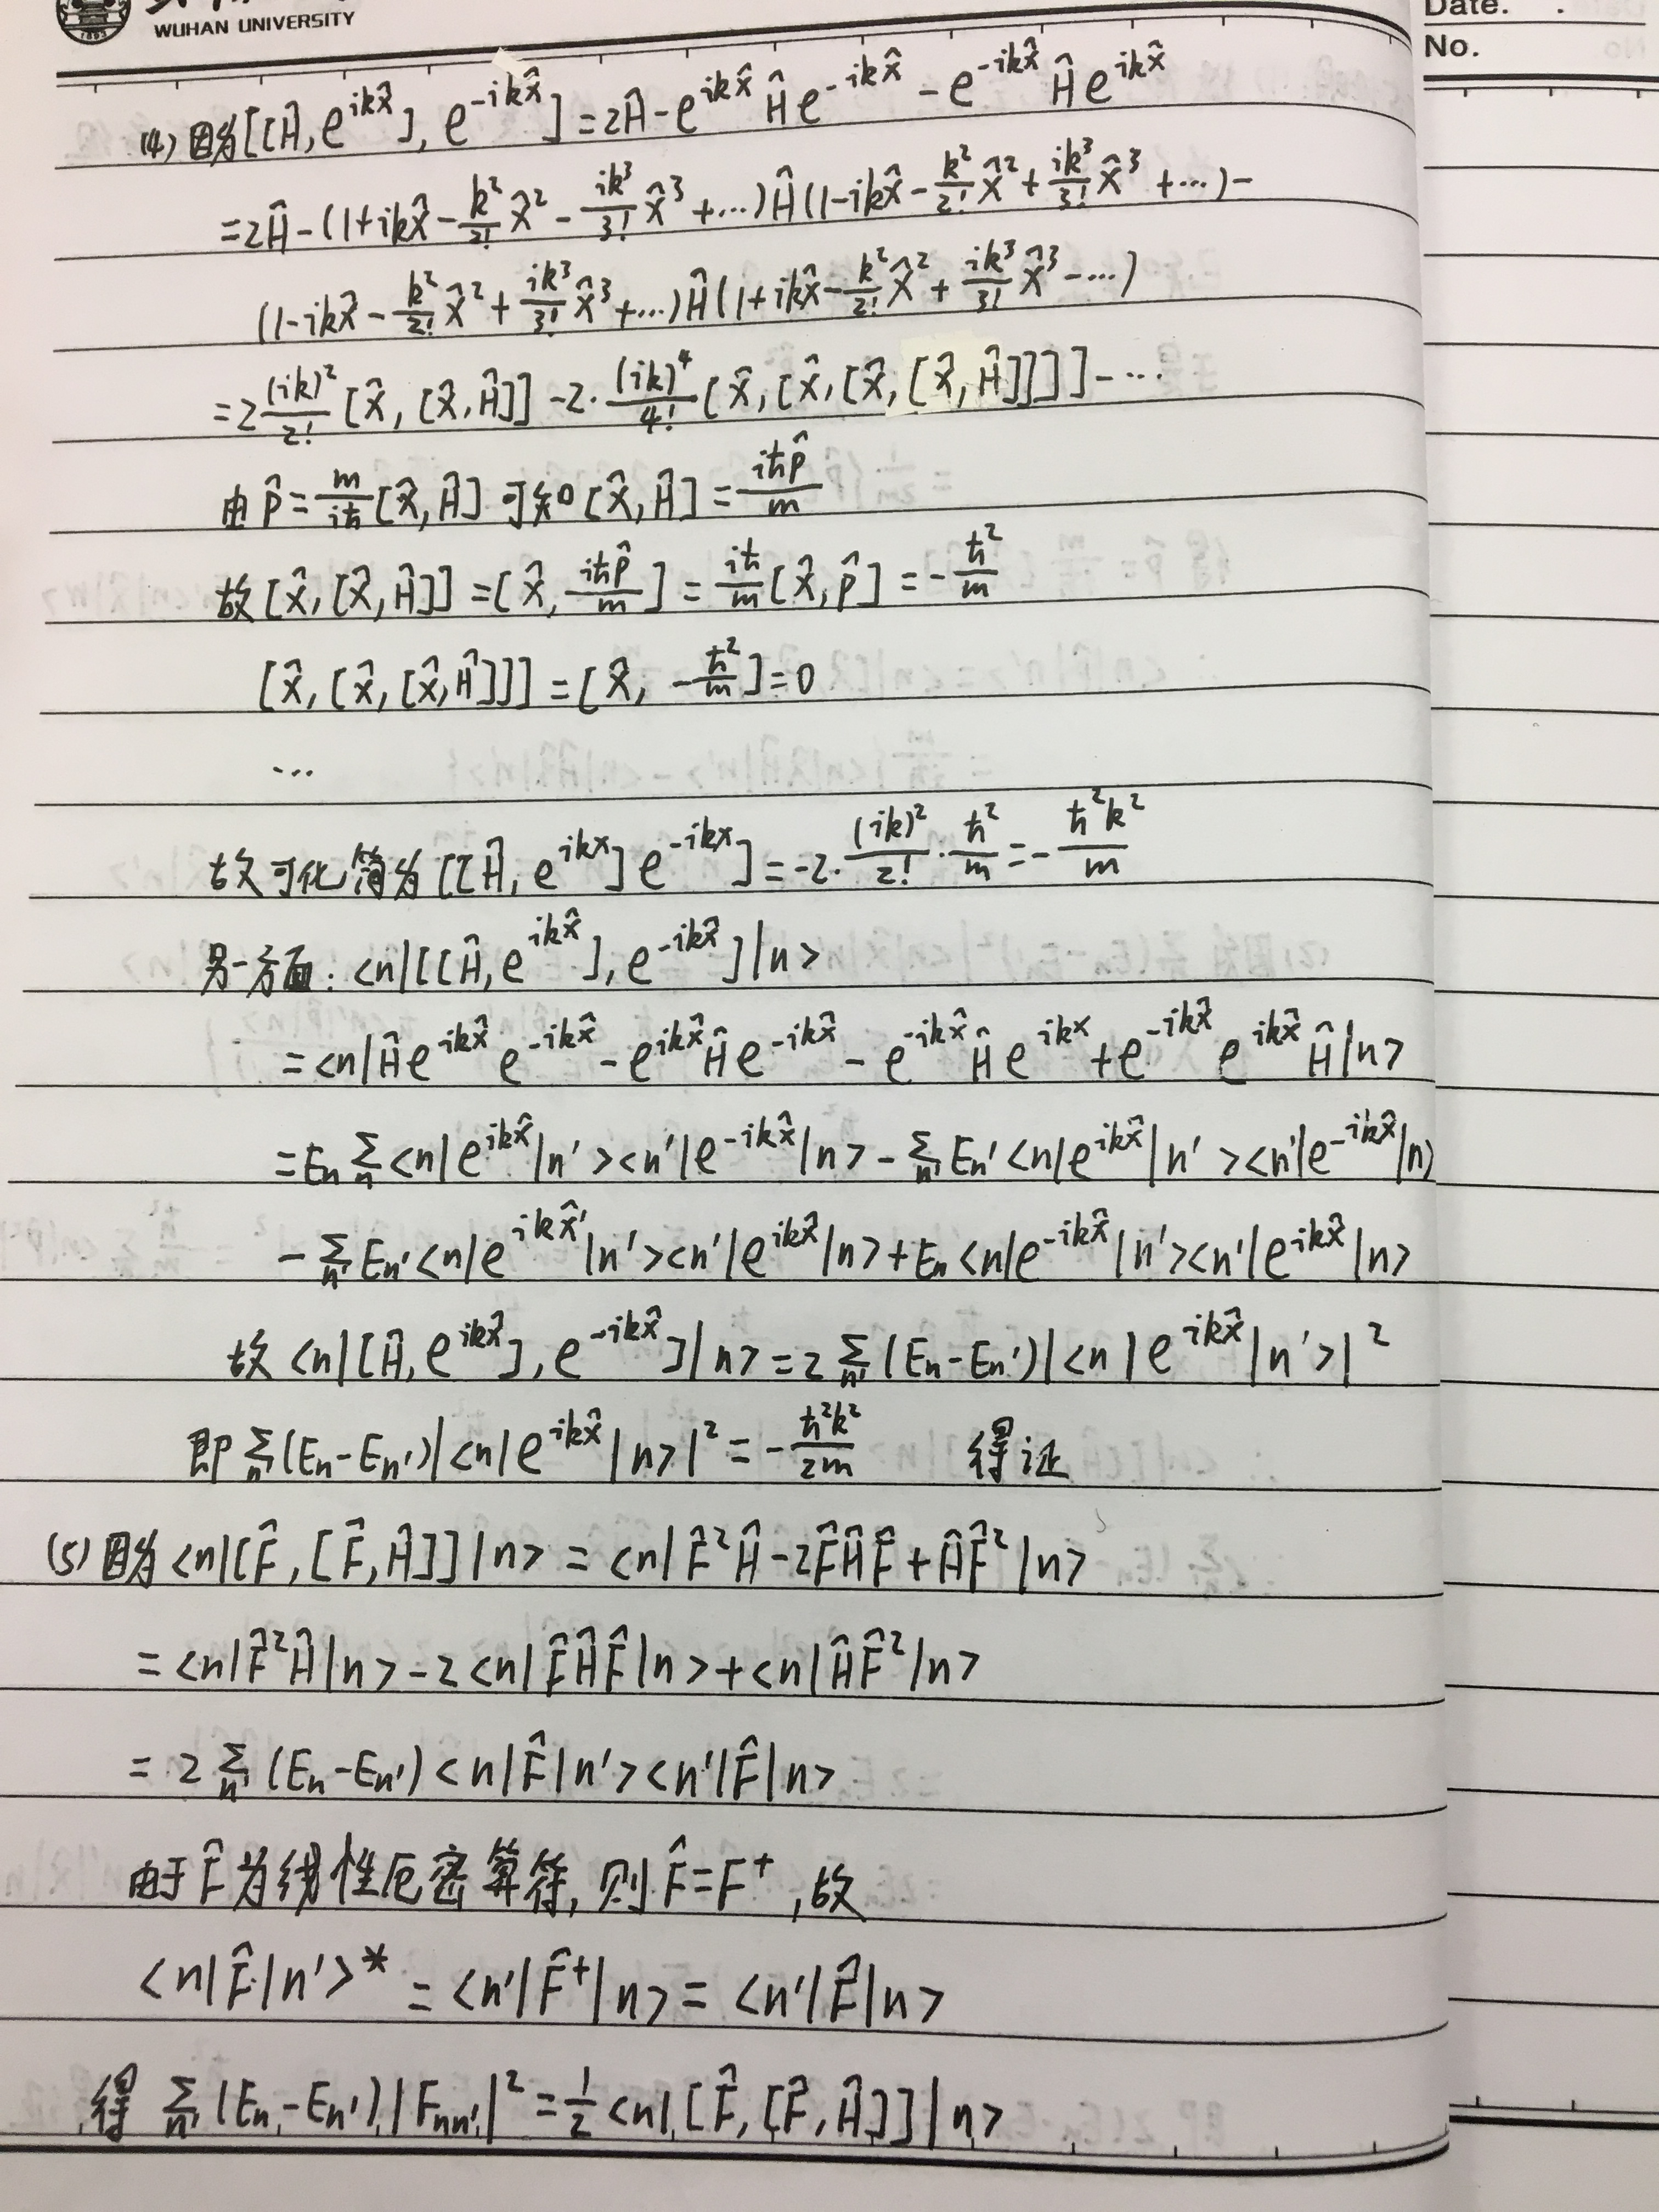 WUHAN UNIVERSITY
Date.
No.
(4) 因为[[Ĥ, e^{ikx̂}], e^{-ikx̂}] = 2Ĥ - e^{ikx̂} Ĥ e^{-ikx̂} - e^{-ikx̂} Ĥ e^{ikx̂}
= 2Ĥ - (1+ikx̂ - k²/2! x̂² - ik³/3! x̂³ + ...) Ĥ (1-ikx̂ - k²/2! x̂² + ik³/3! x̂³ + ...) -
(1-ikx̂ - k²/2! x̂² + ik³/3! x̂³ + ...) Ĥ (1+ikx̂ - k²/2! x̂² + ik³/3! x̂³ - ...)
= 2 (ik)²/2! [x̂, [x̂, Ĥ]] - 2· (ik)⁴/4! [x̂, [x̂, [x̂, [x̂, Ĥ]]]] - ...
由 p̂ = m/iħ [x̂, Ĥ] 可知 [x̂, Ĥ] = iħp̂/m
故 [x̂, [x̂, Ĥ]] = [x̂, iħp̂/m] = iħ/m [x̂, p̂] = -ħ²/m
[x̂, [x̂, [x̂, Ĥ]]] = [x̂, -ħ²/m] = 0
...
故可化简为 [[Ĥ, e^{ikx}] e^{-ikx}] = -2· (ik)²/2! · ħ²/m = - ħ²k²/m
另一方面: <n|[[Ĥ, e^{ikx̂}], e^{-ikx̂}]|n>
= <n|Ĥ e^{ikx̂} e^{-ikx̂} - e^{ikx̂} Ĥ e^{-ikx̂} - e^{-ikx̂} Ĥ e^{ikx} + e^{-ikx̂} e^{ikx̂} Ĥ|n>
= En Σ_n <n|e^{ikx̂}|n'><n'|e^{-ikx̂}|n> - Σ_n' En' <n|e^{ikx̂}|n'><n'|e^{-ikx̂}|n)
- Σ_n' En' <n|e^{ikx̂'}|n'><n'|e^{ikx̂}|n> + En <n|e^{-ikx̂}|n'><n'|e^{ikx̂}|n>
故 <n|[Ĥ, e^{ikx̂}], e^{-ikx̂}]|n> = 2 Σ_n' (En - En')|<n|e^{ikx̂}|n'>|²
即 Σ_n' (En - En')|<n|e^{ikx̂}|n>|² = - ħ²k²/2m 得证
(5) 因为 <n|[F̂, [F̂, Ĥ]]|n> = <n|F̂²Ĥ - 2F̂ĤF̂ + ĤF̂²|n>
= <n|F̂²Ĥ|n> - 2<n|F̂ĤF̂|n> + <n|ĤF̂²|n>
= 2 Σ_n' (En - En') <n|F̂|n'><n'|F̂|n>
由于 F̂ 为线性厄密算符, 则 F̂ = F⁺, 故
<n|F̂|n'>* = <n'|F̂⁺|n> = <n'|F̂|n>
得 Σ_n' (En - En')|Fnn'|² = 1/2 <n|[F̂, [F̂, Ĥ]]|n>